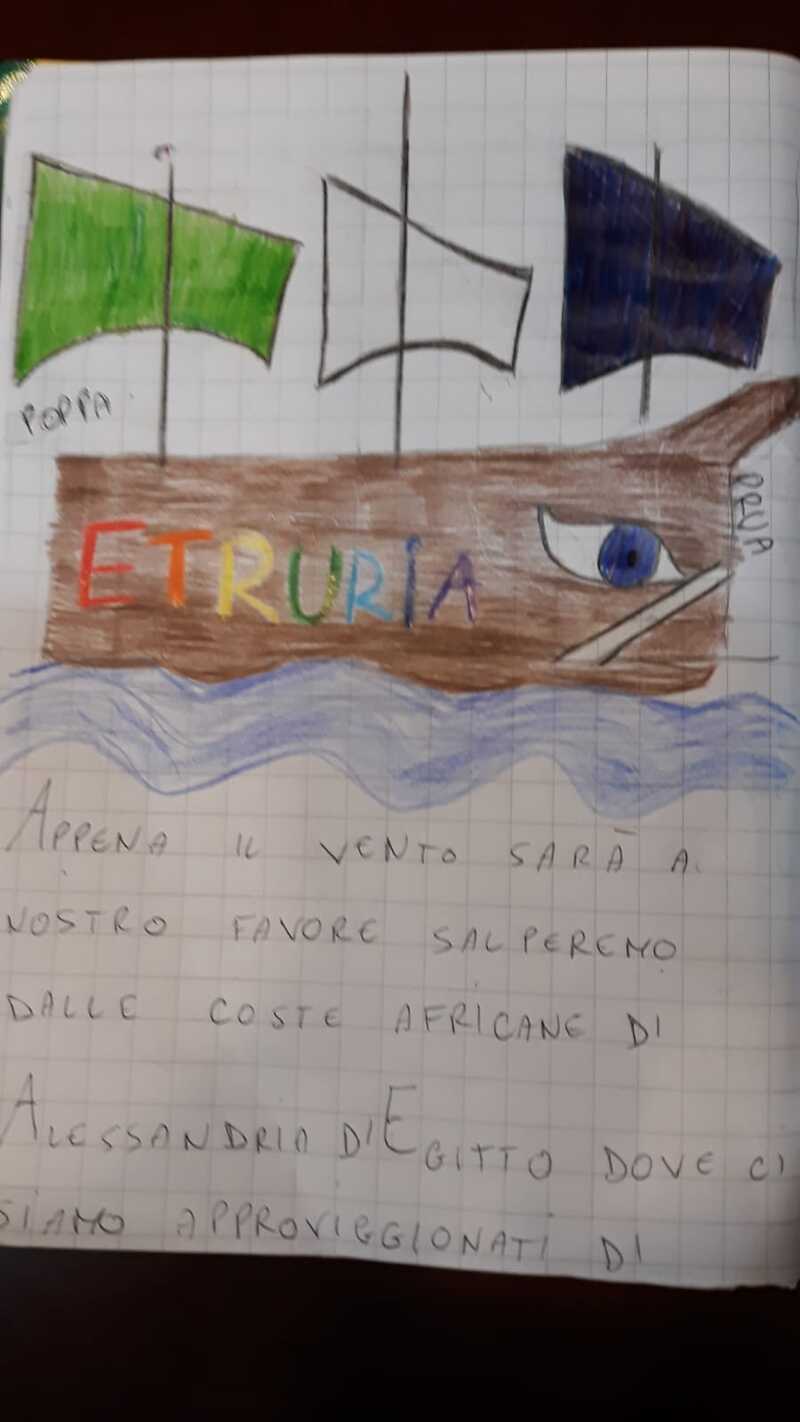 POPPA
PRUA
ETRURIA
APPENA IL VENTO SARÀ A
NOSTRO FAVORE SALPEREMO
DALLE COSTE AFRICANE DI
ALESSANDRIA D'EGITTO DOVE CI
SIAMO APPROVIGGIONATI DI